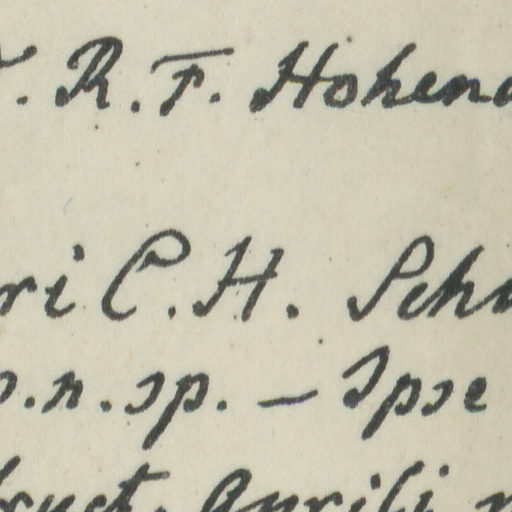 . R. F. Hohena
ri C. H. Schu
p. n. sp. — Ipse
fruct. Aprili n